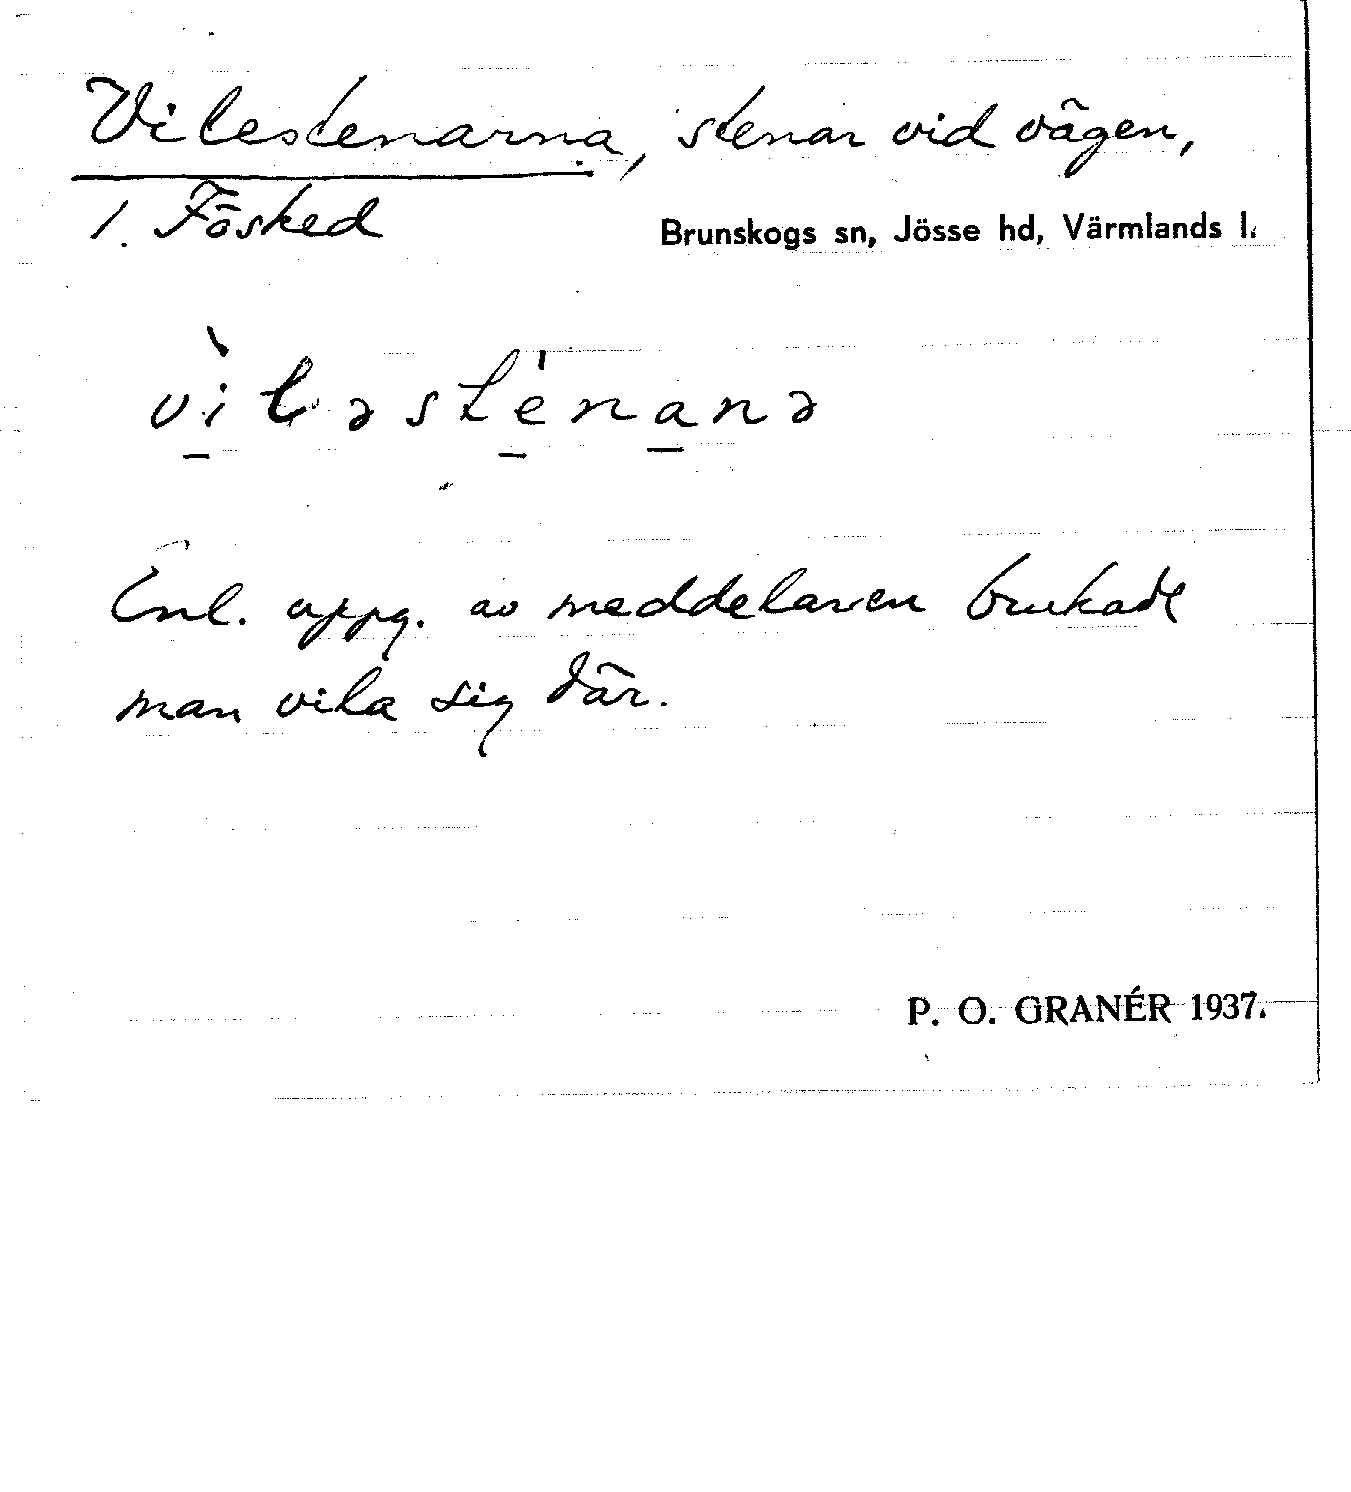 Vilestenarna, stenar vid vägen,
1. Fösked Brunskogs sn, Jösse hd, Värmlands l.
vìləsténanə
Enl. uppg. av meddelaren brukade
man vila sig där.
P. O. GRANÉR 1937.